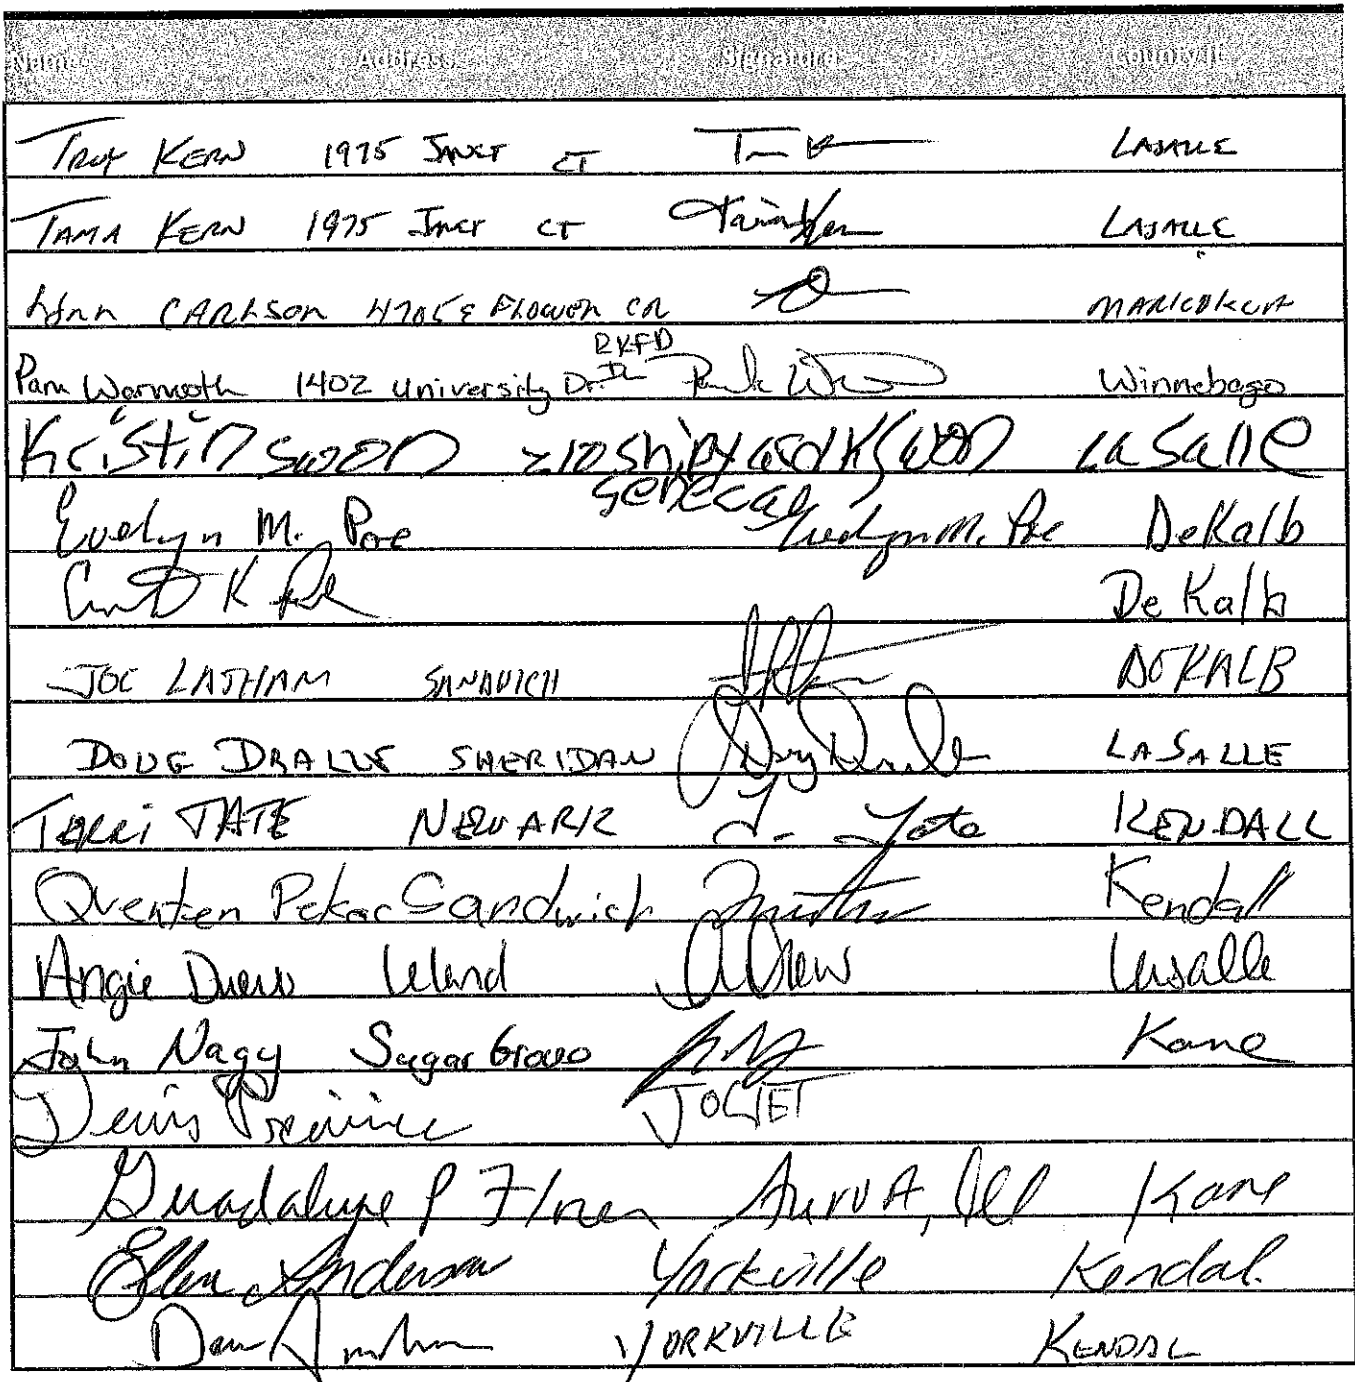 Name Address Signature County IL
TROY KERN 1975 JANET CT LASALLE
TAMA KERN 1975 JANET CT Tama Kern LASALLE
Lynn CARLSON 4705 E Flower
RKFD
Pam Wormwoth 1402 University Dr IL Winnebago
Kristin Swon 210 Shipyard KSwon LaSalle
Seneca
Evelyn M. Poe Evelyn M. Poe DeKalb
K DeKalb
JOE LATHAM SANDWICH DEKALB
DOUG DRALLE SHERIDAN Doug Dralle LASALLE
TERRI TATE NEWARK T- Tate KENDALL
Quenten Sandwich Kendall
Angie Drew Leland A Drew Lasalle
John Nagy Sugar Grove Kane
JOLIET
Guadalupe P Flores Aurora, Ill Kane
Ellen Anderson Yorkville Kendal.
YORKVILLE KENDAL